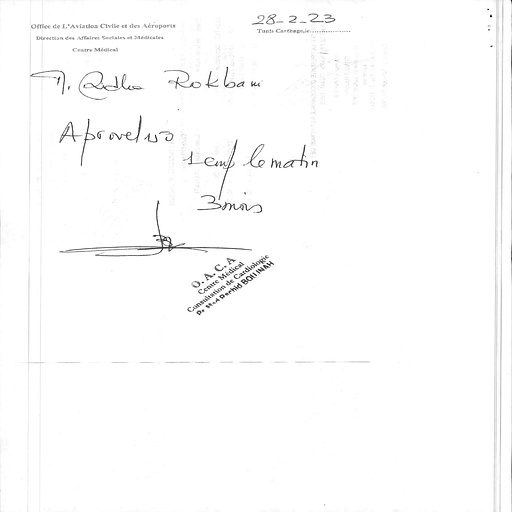 Office de L'Aviation Civile et des Aéroports
Direction des Affaires Sociales et Médicales
Centre Médical
28-2-23
Tunis Carthage,le
Rokbani
Aprovel 150
1 cmp le matin
3 mois
O. A. C. A
Centre Médical
Consultation de Cardiologie